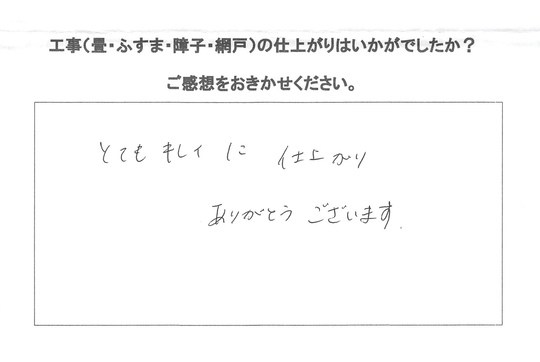 工事(畳・ふすま・障子・網戸)の仕上がりはいかがでしたか?
ご感想をおきかせください。
とても キレイ に 仕上がり
ありがとう ございます.